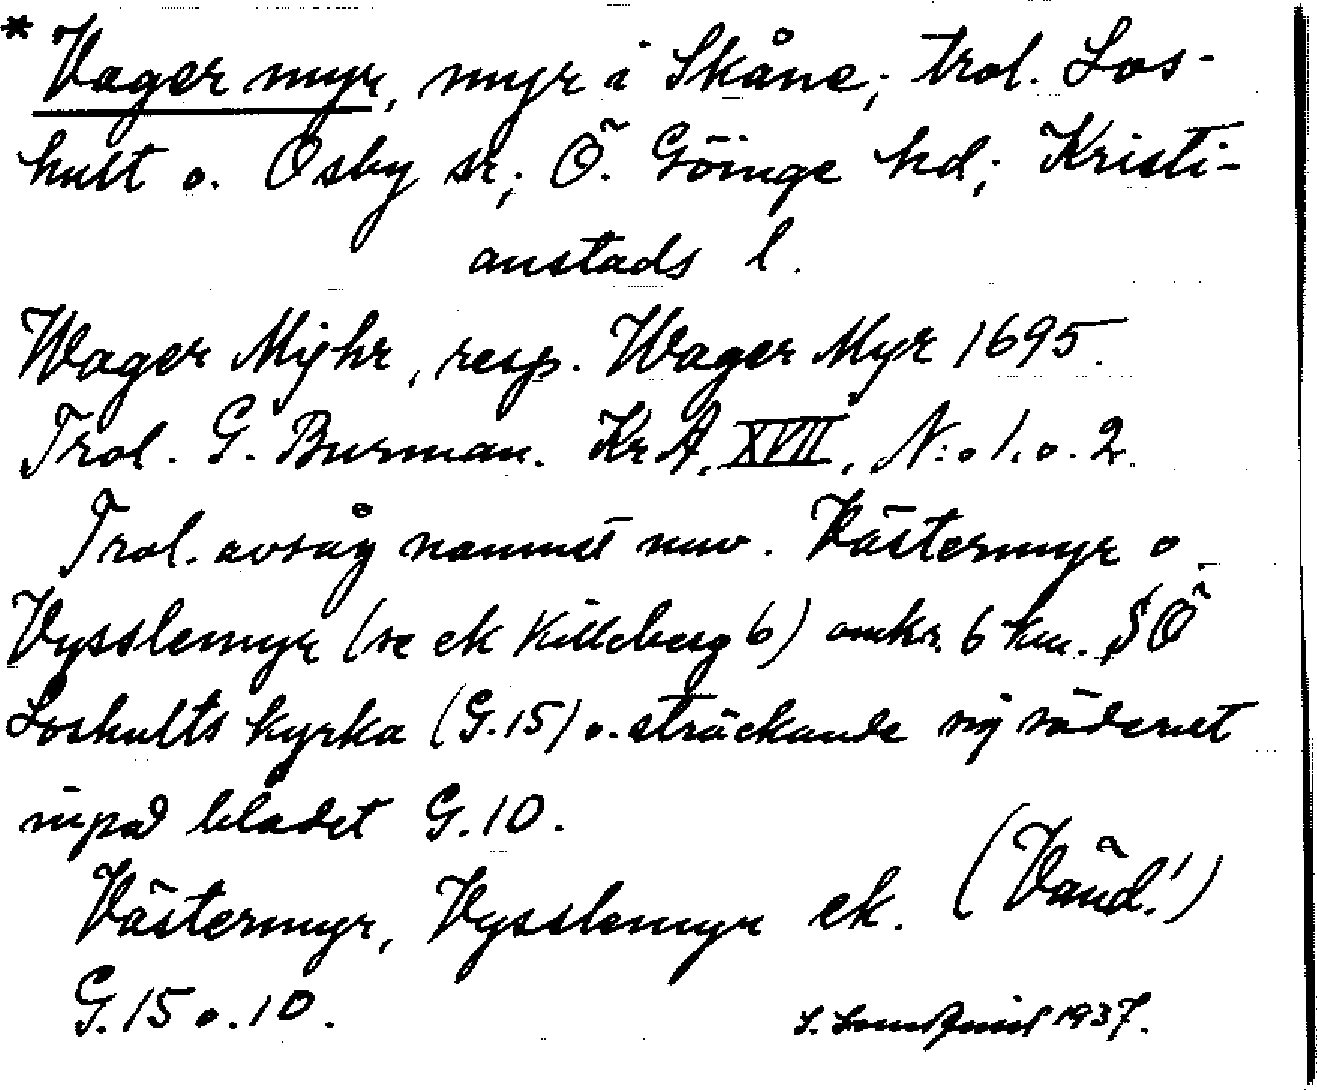 * Vager myr, myr i Skåne; trol. Los-
hult o. Osby sn; Ö. Göinge hd; Kristi-
anstads l.
Wager Mÿhr, resp. Wager Myr 1695.
Trol. G. Burman. KrA, XVII, N:o 1. o. 2.
Trol. avsåg namnet nuv. Västermyr o
Vysslemyr (se ek Killeberg 6) omkr. 6 km. SÖ
Loshults kyrka (G.15) o. sträckande sig söderut
inpå bladet G.10.
Västermyr, Vysslemyr ek. (Vänd!)
G.15 o. 10.
1937.